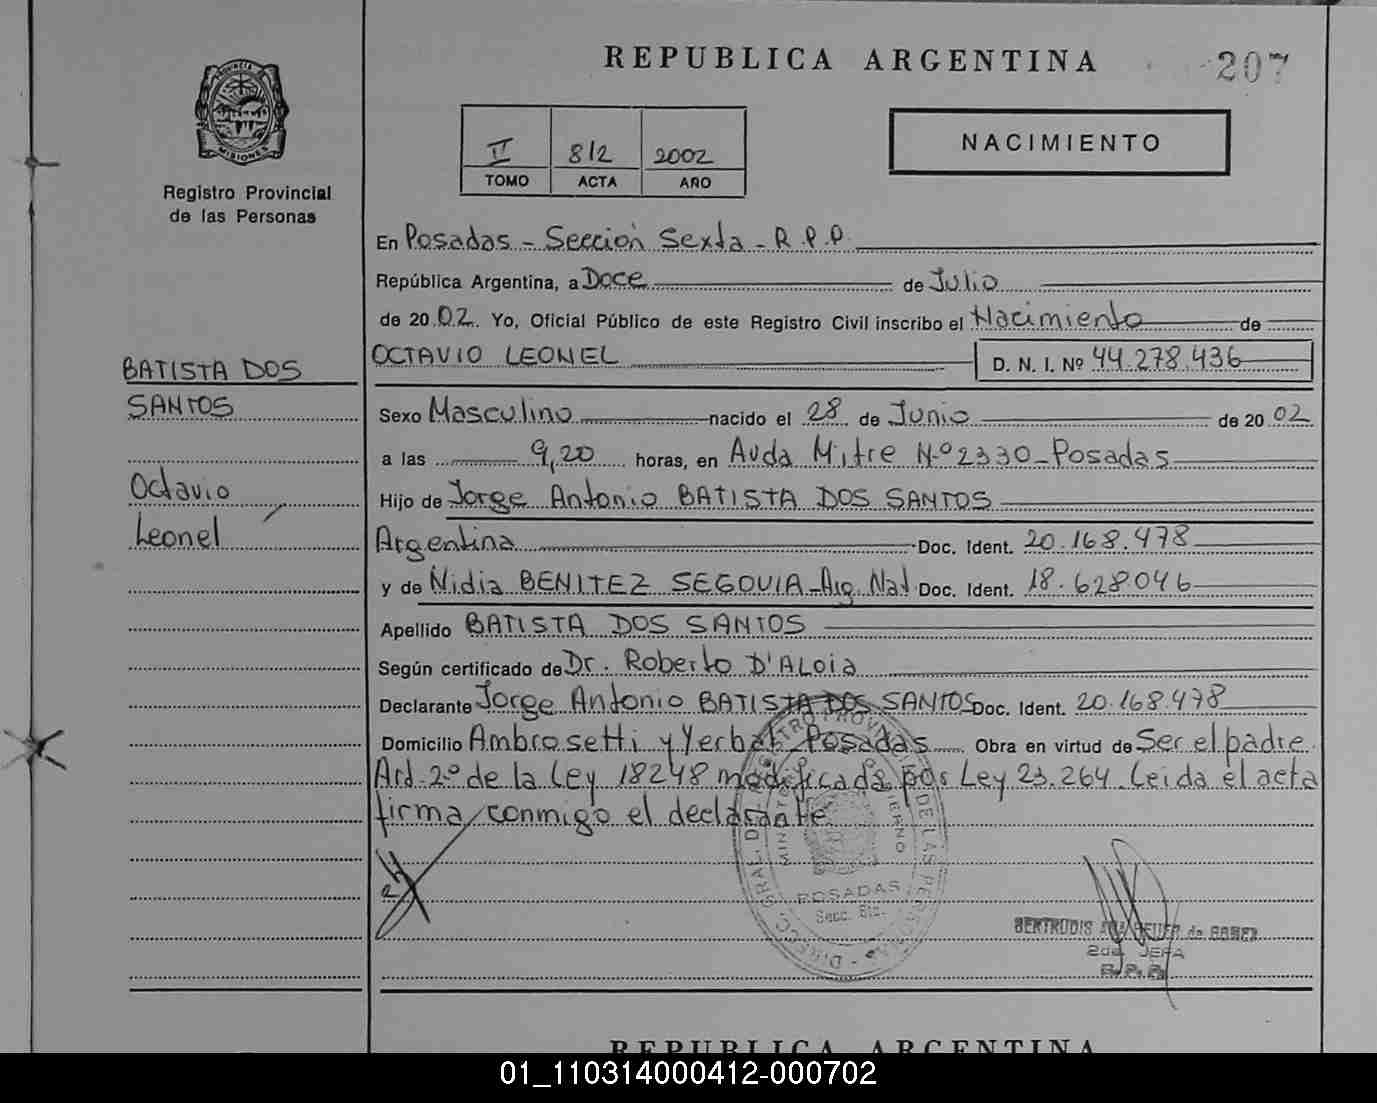 REPUBLICA ARGENTINA
207
PROVINCIA DE MISIONES
Registro Provincial
de las Personas
II 812 2002
TOMO ACTA AÑO
NACIMIENTO
En Posadas - Sección Sexta - R.P.P.
República Argentina, a Doce de Julio
de 2002. Yo, Oficial Público de este Registro Civil inscribo el Nacimiento de
OCTAVIO LEONEL D. N. I. Nº 44.278.436
BATISTA DOS
SANTOS
Octavio
Leonel
Sexo Masculino nacido el 28 de Junio de 2002
a las 9,20 horas, en Avda Mitre Nº 2330 - Posadas
Hijo de Jorge Antonio BATISTA DOS SANTOS
Argentina Doc. Ident. 20.168.478
y de Nidia BENITEZ SEGOVIA - Arg. Nat. Doc. Ident. 18.628.046
Apellido BATISTA DOS SANTOS
Según certificado de Dr. Roberto D'ALOIA
Declarante Jorge Antonio BATISTA DOS SANTOS Doc. Ident. 20.168.478
Domicilio Ambrosetti y Yerbal - Posadas Obra en virtud de Ser el padre
Art. 2º de la Ley 18248 modificada por Ley 23.264. Leida el acta
firma conmigo el declarante
DIRECC. GRAL. DEL REGISTRO PROVINCIAL DE LAS PERSONAS
MINISTERIO DE GOBIERNO
POSADAS
Secc. 6ta.
BERTRUDIS ANA de
2da. JEFA
R.P.P.
REPUBLICA ARGENTINA
01_110314000412-000702